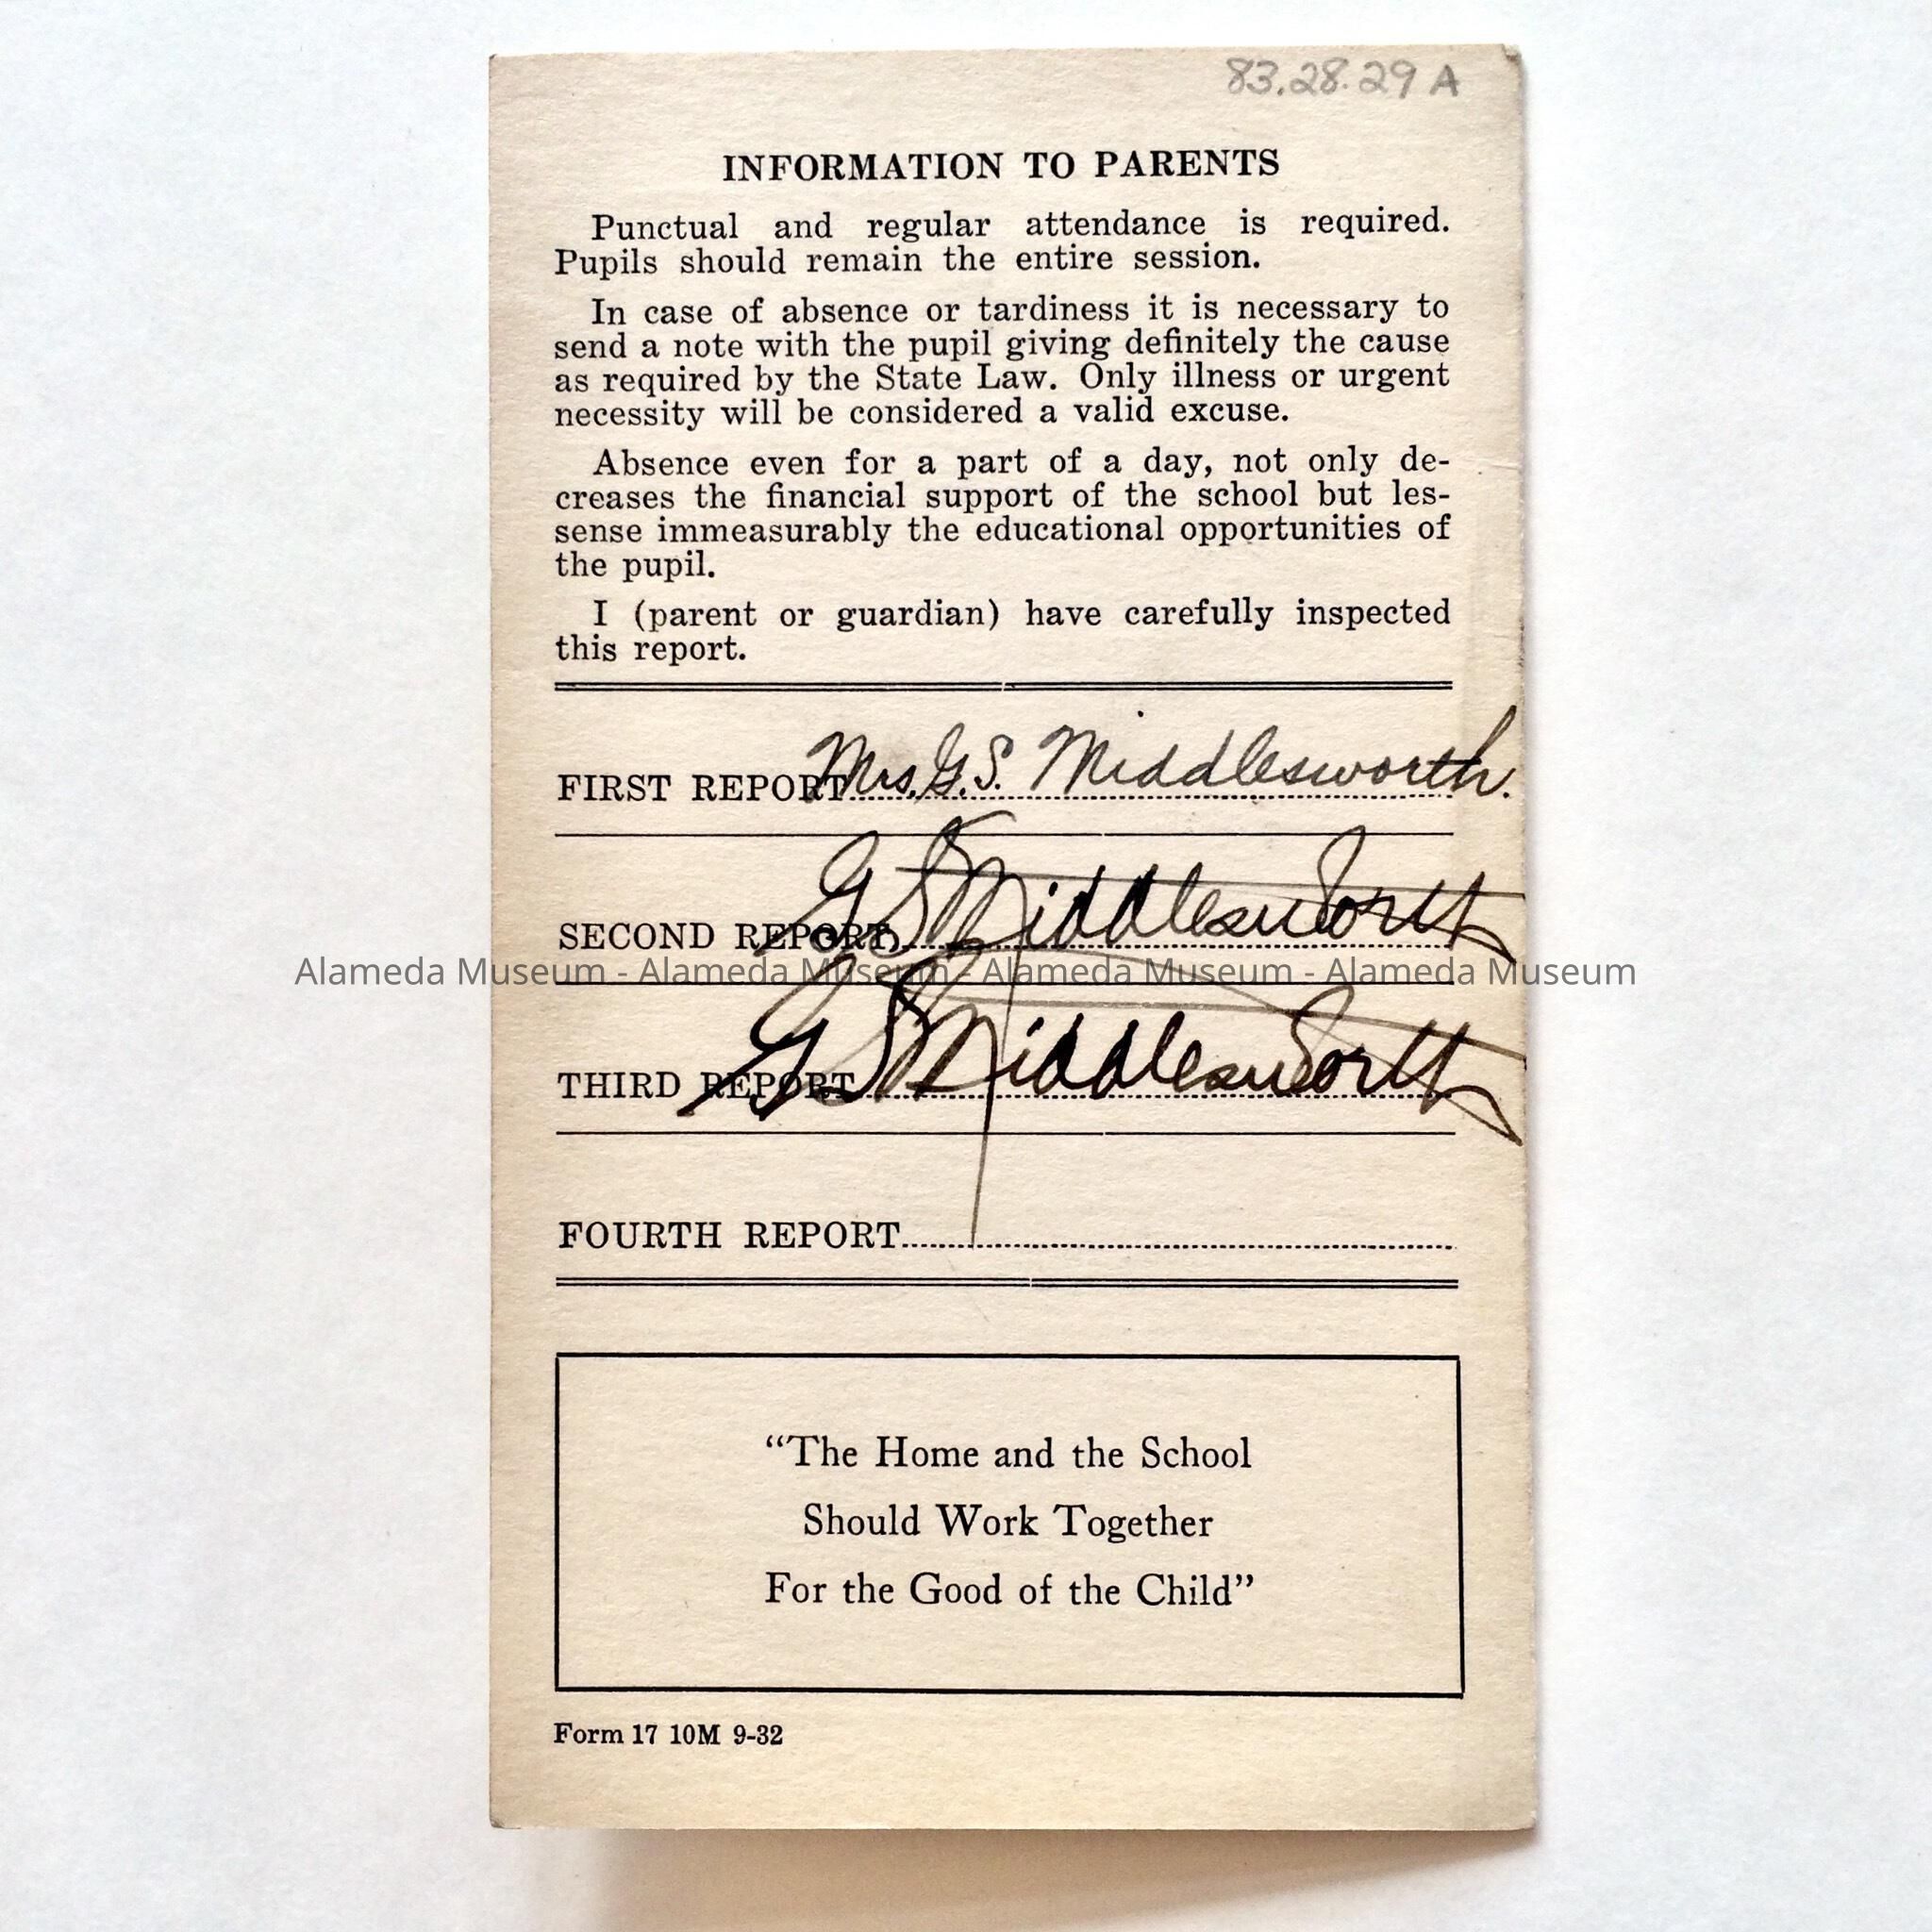 83.28.29 A
INFORMATION TO PARENTS
Punctual and regular attendance is required.
Pupils should remain the entire session.
In case of absence or tardiness it is necessary to
send a note with the pupil giving definitely the cause
as required by the State Law. Only illness or urgent
necessity will be considered a valid excuse.
Absence even for a part of a day, not only de-
creases the financial support of the school but les-
sense immeasurably the educational opportunities of
the pupil.
I (parent or guardian) have carefully inspected
this report.
FIRST REPORT Mrs. G. S. Middlesworth.
SECOND REPORT G S Middlesworth
Alameda Museum - Alameda Museum - Alameda Museum - Alameda Museum
THIRD REPORT G S Middlesworth
FOURTH REPORT
“The Home and the School
Should Work Together
For the Good of the Child”
Form 17 10M 9-32